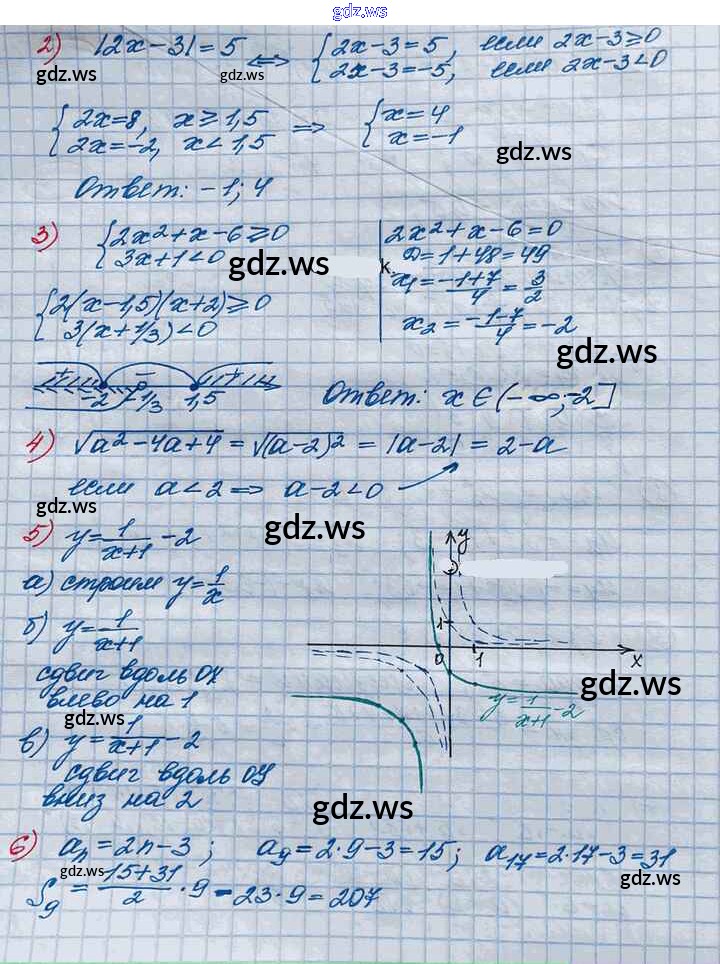 gdz.ws
2) |2x-3|=5 ⟺ { 2x-3=5, если 2x-3≥0
2x-3=-5, если 2x-3<0
gdz.ws gdz.ws
{ 2x=8, x≥1,5 ⟹ { x=4
2x=-2, x<1,5 x=-1
gdz.ws
Ответ: -1; 4
3) { 2x²+x-6≥0
3x+1<0
gdz.ws
{ 2(x-1,5)(x+2)≥0
3(x+1/3)<0
2x²+x-6=0
D=1+48=49
k.
x₁=(-1+7)/4=3/2
x₂=(-1-7)/4=-2
gdz.ws
+ - +
-2 -1/3 1,5
Ответ: x∈(-∞;-2]
4) √(a²-4a+4) = √((a-2)²) = |a-2| = 2-a
если a<2 ⟹ a-2<0
gdz.ws gdz.ws
5) y=1/(x+1) -2
а) строим y=1/x
б) y=1/(x+1)
сдвиг вдоль OX
влево на 1
gdz.ws
в) y=1/(x+1)-2
сдвиг вдоль OY
вниз на 2
y
1
0 1 x
gdz.ws
y=1/(x+1)-2
gdz.ws
6) aₙ=2n-3; a₉=2·9-3=15; a₁₇=2·17-3=31
gdz.ws gdz.ws
S₉=(15+31)/2·9=23·9=207